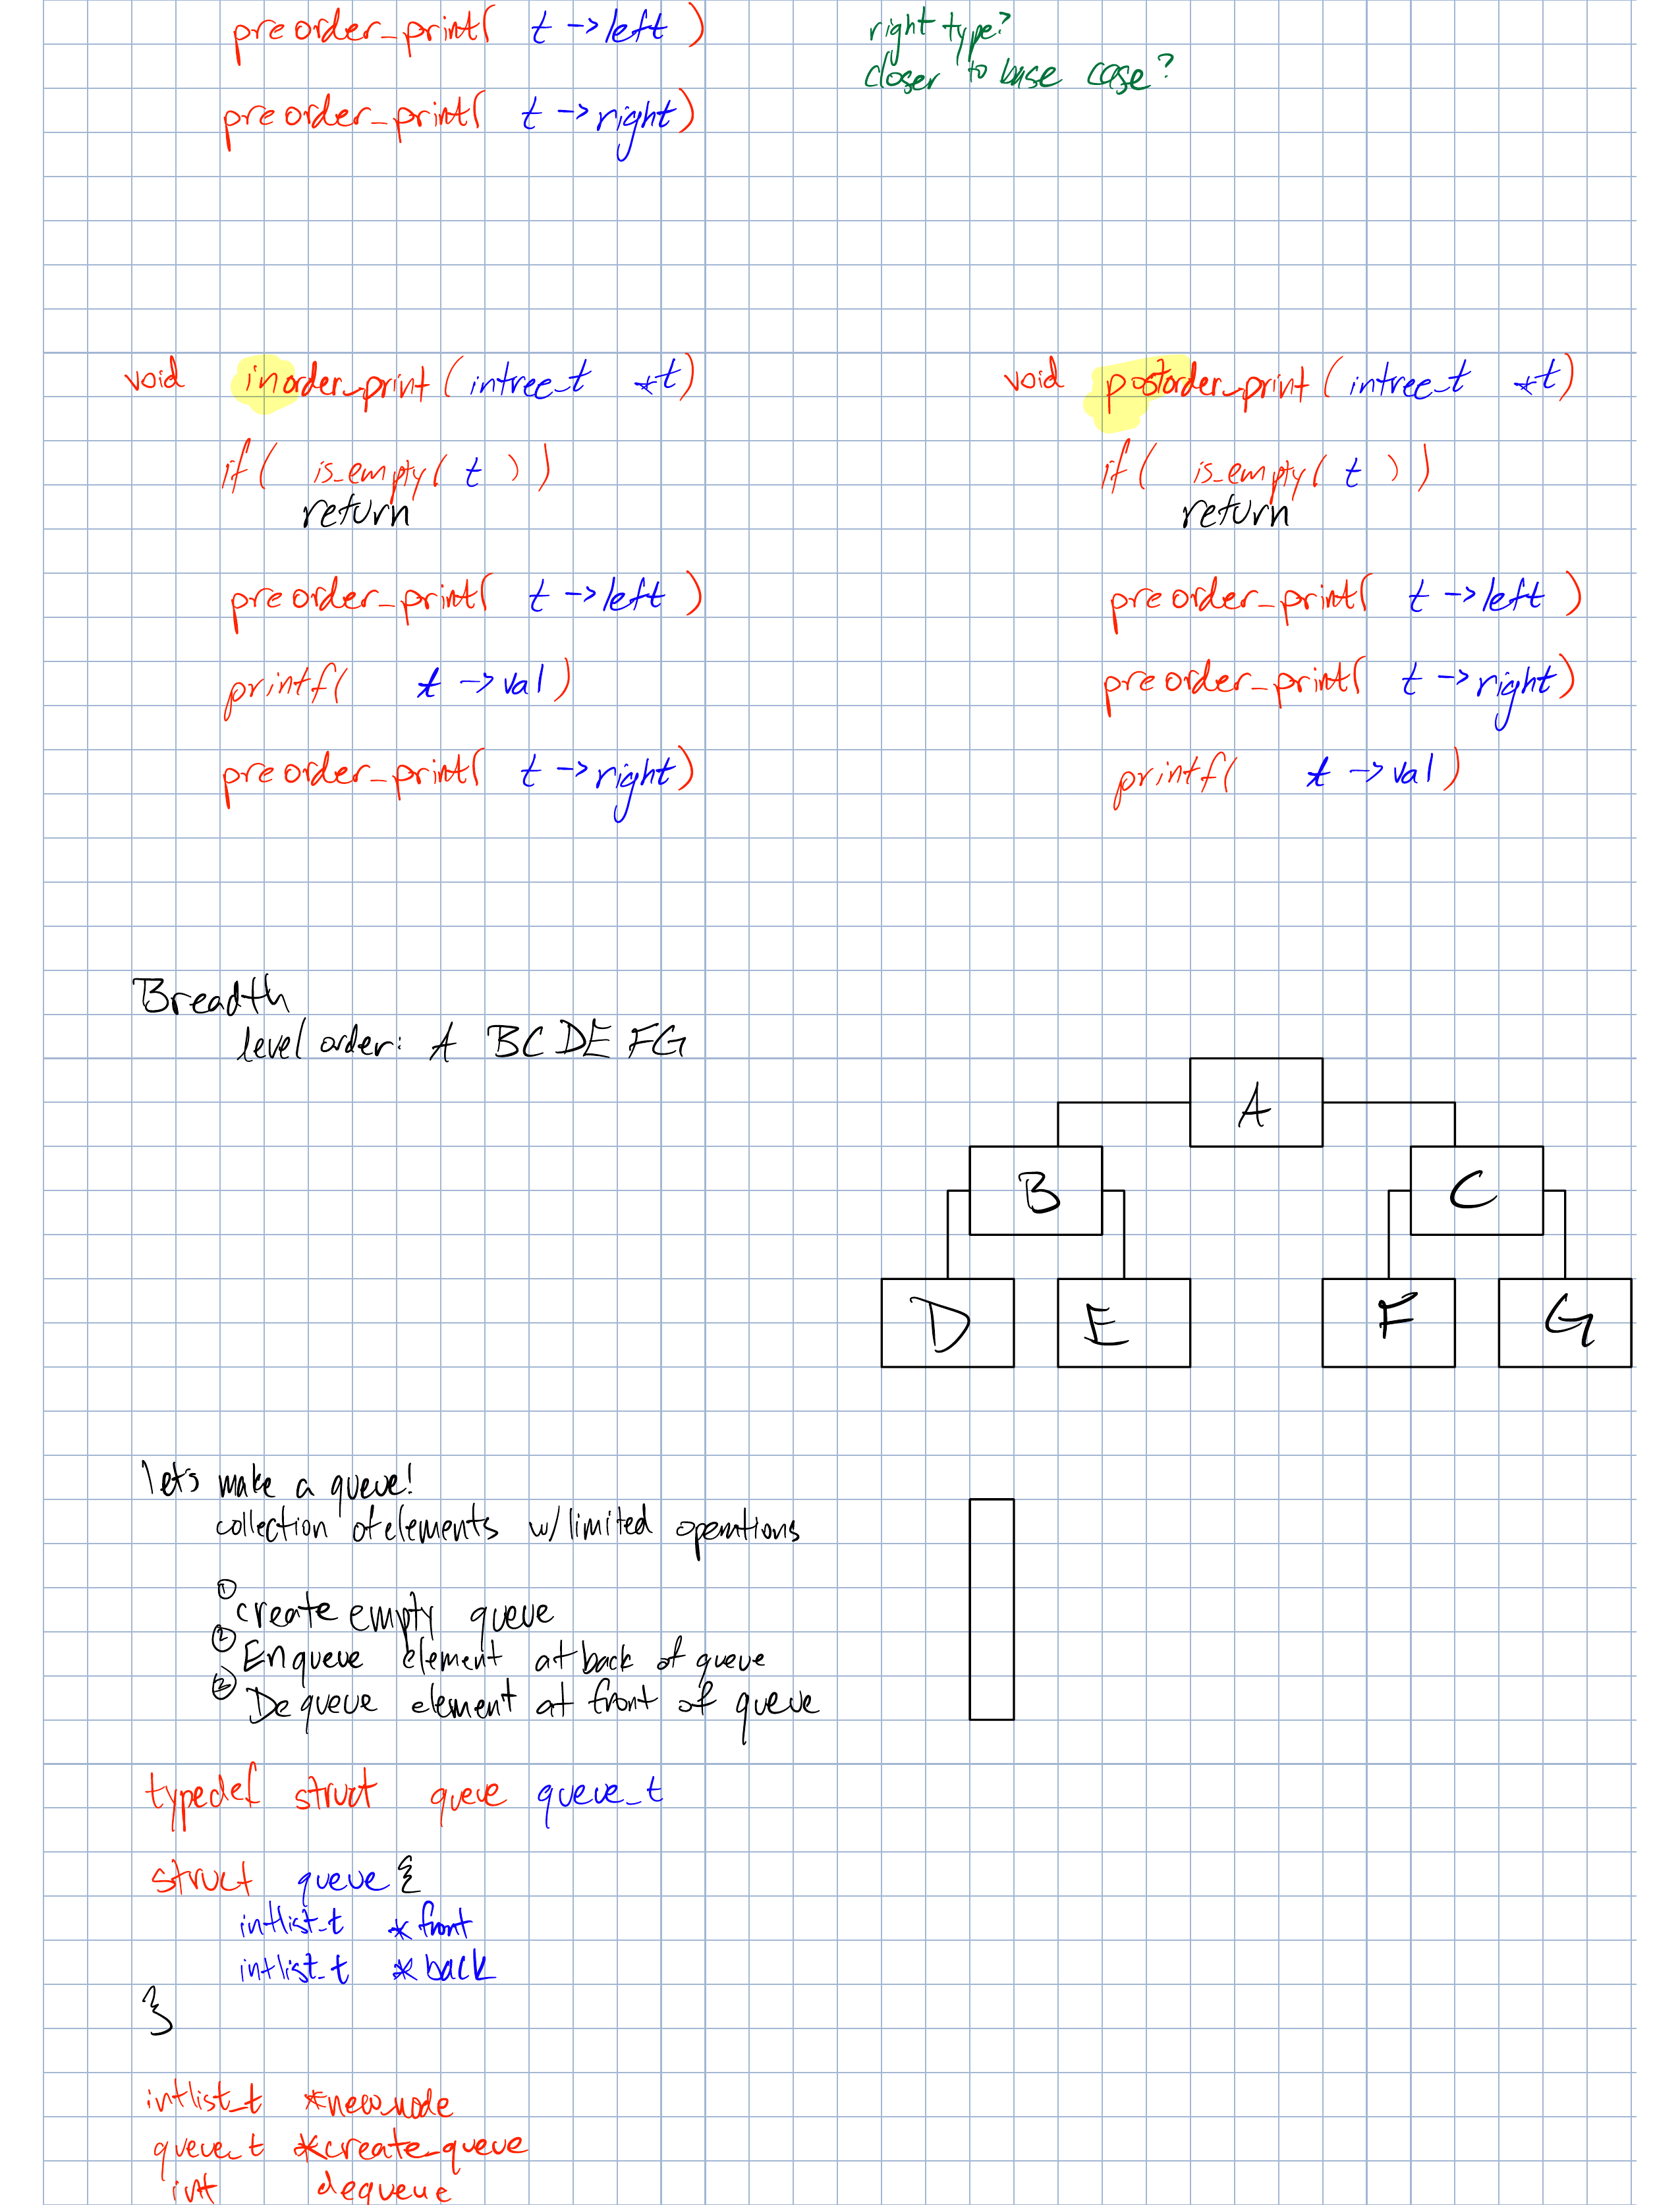 preorder_print( t ->left )
right type?
closer to base case?
preorder_print( t ->right)
void inorder_print (intree_t *t)
if ( is_empty( t ) )
return
preorder_print( t ->left )
printf( t ->val)
preorder_print( t ->right)
void postorder_print (intree_t *t)
if ( is_empty( t ) )
return
preorder_print( t ->left )
preorder_print( t ->right)
printf( t ->val)
Breadth
level order: A BC DE FG
A
B
C
D
E
F
G
lets make a queue!
collection of elements w/ limited operations
① create empty queue
② Enqueue element at back of queue
② Dequeue element at front of queue
typedef struct queue queue_t
struct queue {
intlist_t *front
intlist_t *back
}
intlist_t *new_node
queue_t *create_queue
int dequeue